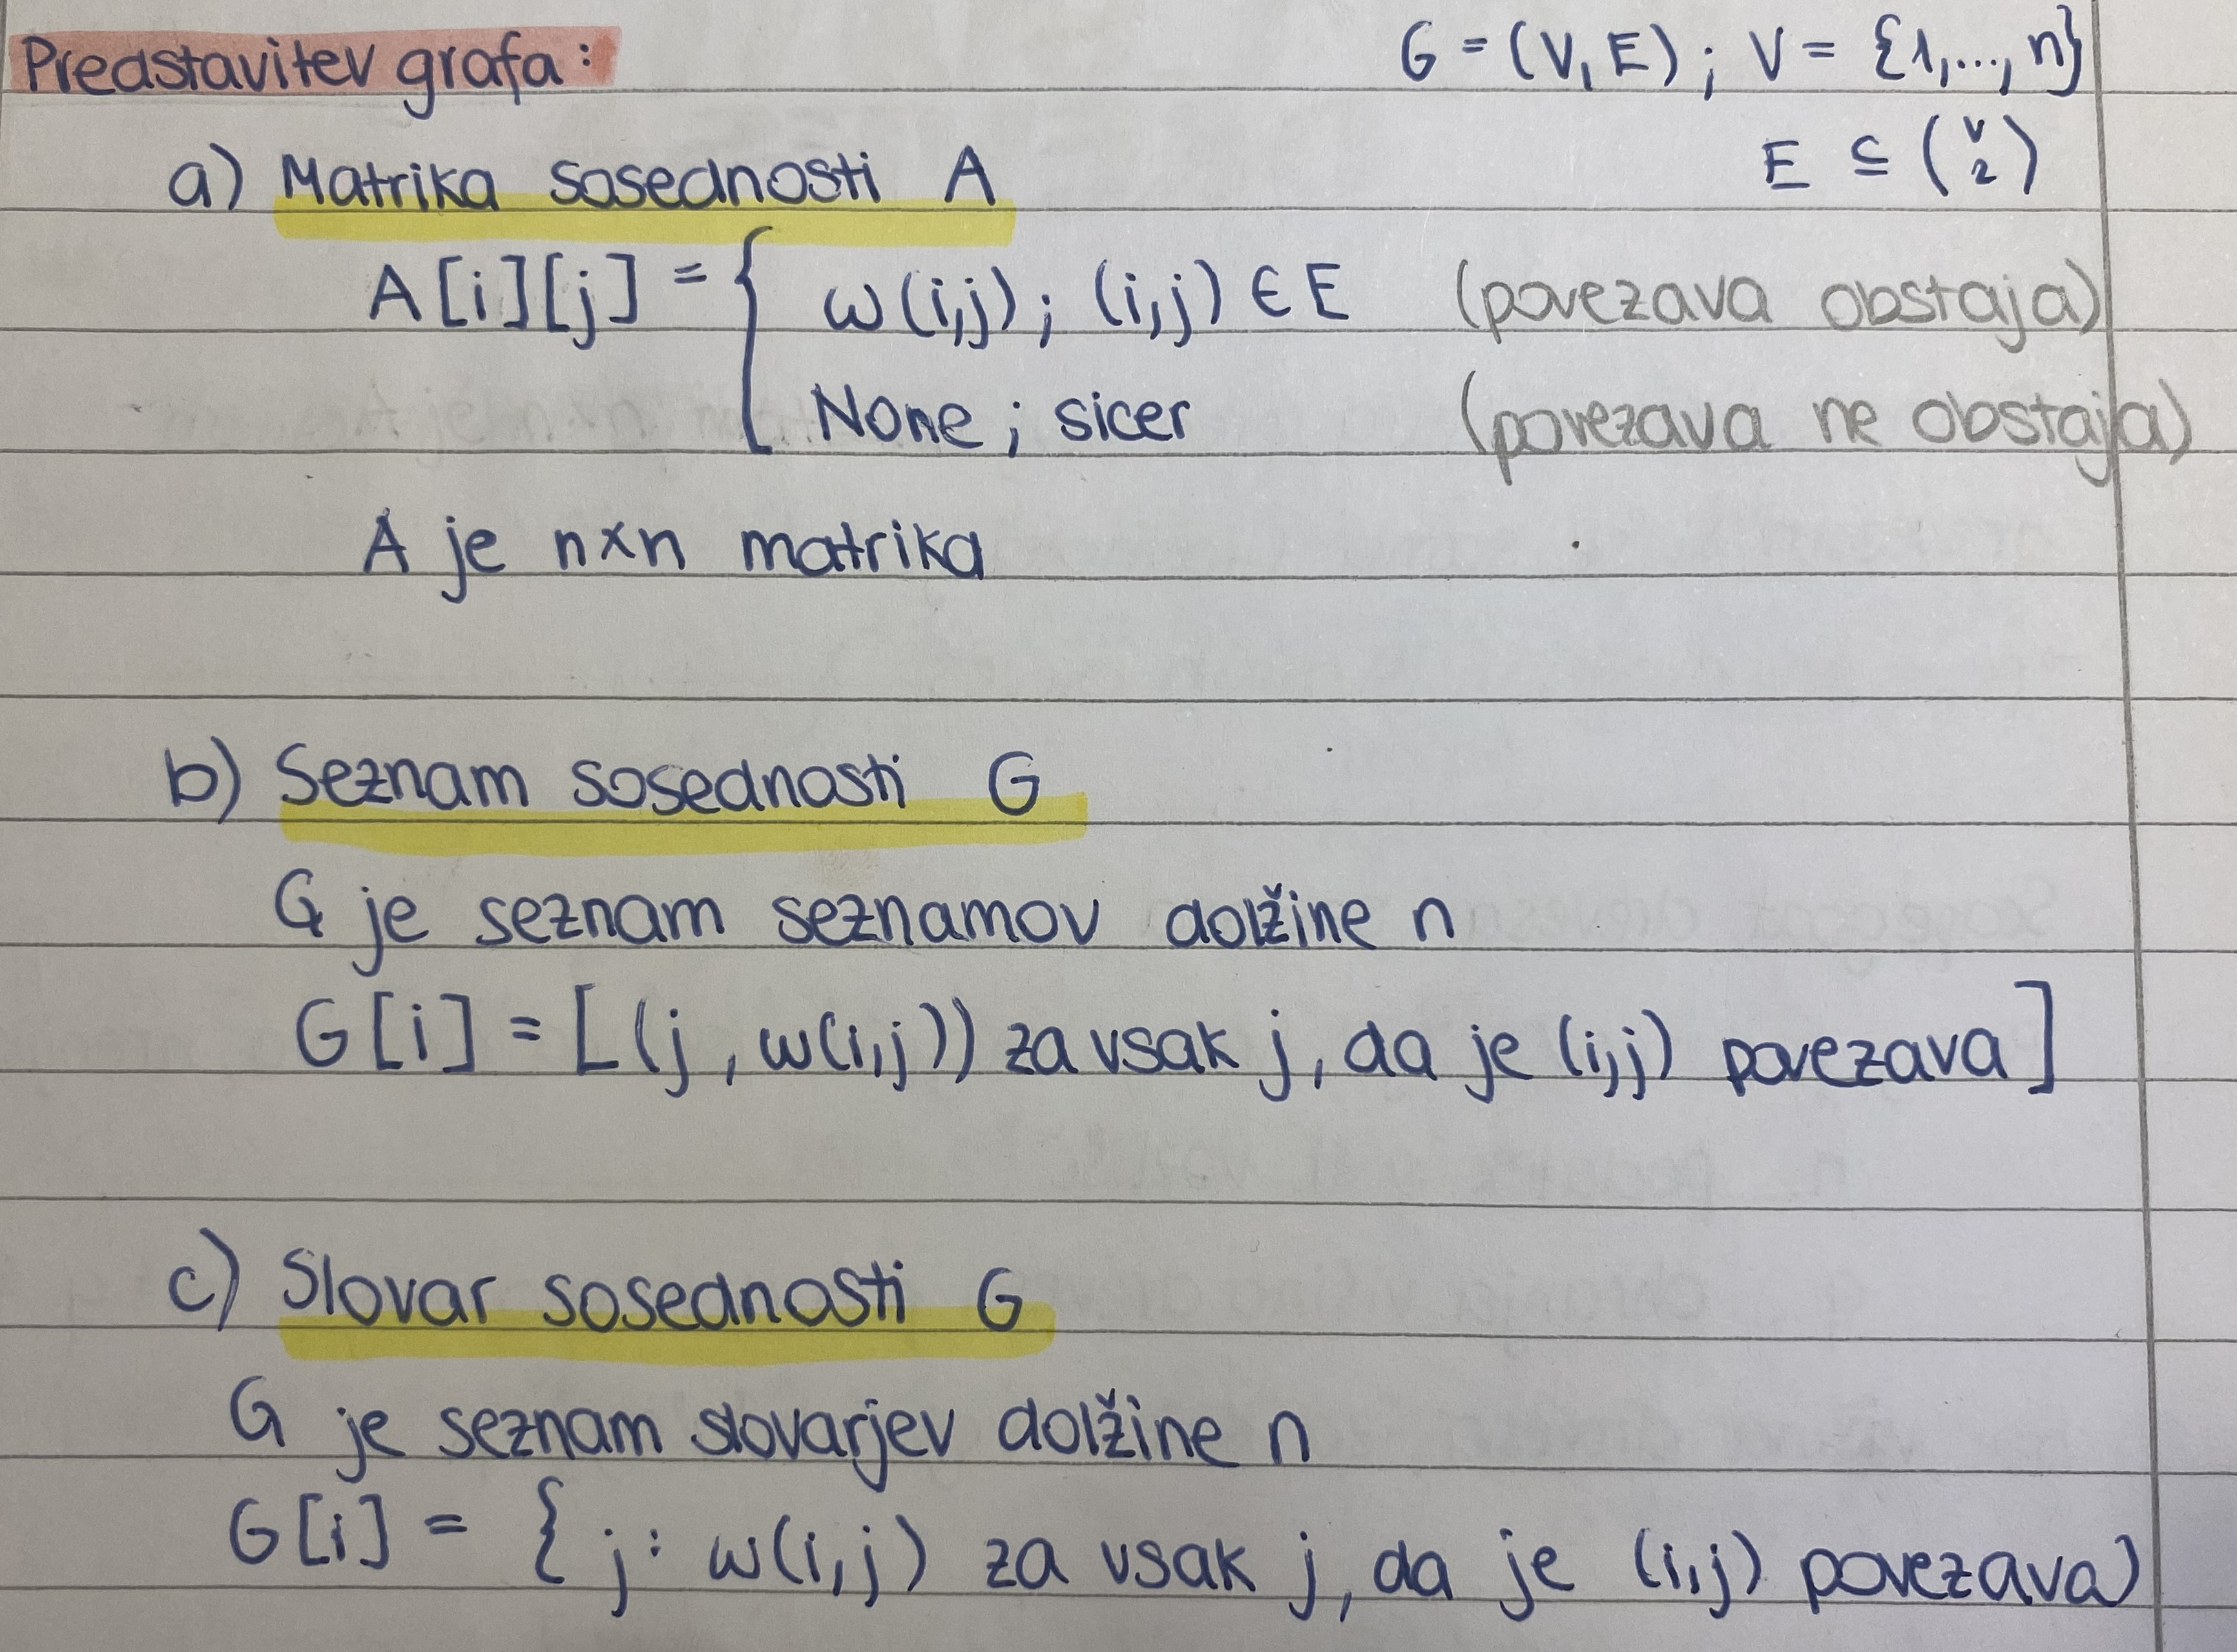 Predstavitev grafa:
G = (V, E) ; V = {1,..., n}
E ⊆ (V 2)
a) Matrika sosednosti A
A[i][j] = { ω(i,j) ; (i,j) ∈ E (povezava obstaja)
None ; sicer (povezava ne obstaja)
A je n×n matrika
b) Seznam sosednosti G
G je seznam seznamov dolžine n
G[i] = [(j, ω(i,j)) za vsak j, da je (i,j) povezava]
c) Slovar sosednosti G
G je seznam slovarjev dolžine n
G[i] = { j: ω(i,j) za vsak j, da je (i,j) povezava)